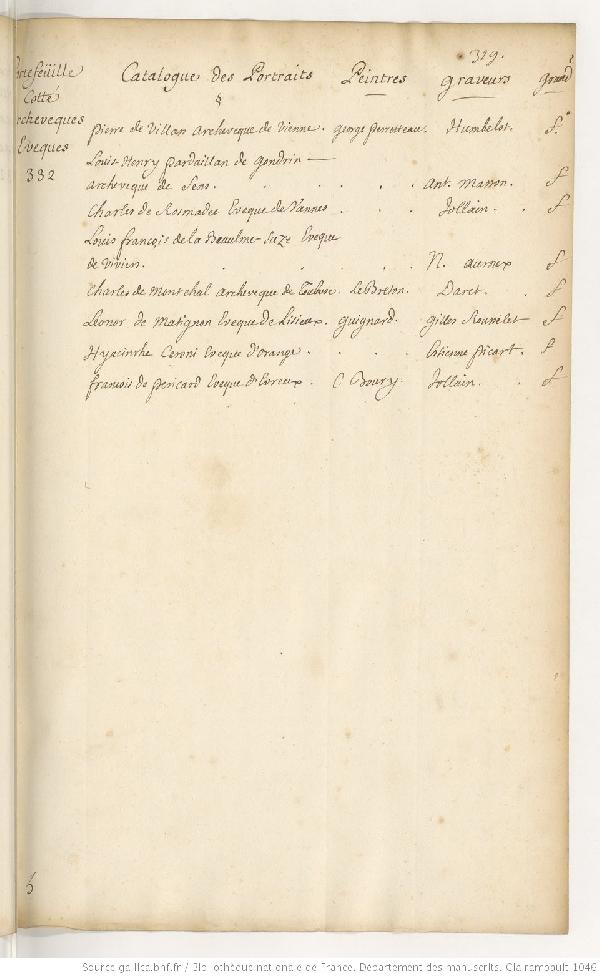 319.
Portefeüille Catalogue des Portraits Peintres graveurs grand.r
Cotté §
Archeveques pierre de Villars archeveque de Vienne. george perroteau. Humbelot. f.o
Eveques Louis Henry pardaillan de gondrin —
332 archeveque de Sens. . . . . ant. masson. f
Charles de Rosmadec Eveque de Vannes . . . Jollain. . f
Louis françois de la Beaulme-Suze Eveque
de Viviers. . . . . . N. auroux f
Charles de montchal archeveque de Toulouse. Le Breton. Daret. . f
Leonor de matignon Eveque de Lisieux. guignard. gilles Rousselet f
Hyacinthe Ceroni Eveque d'orange . . . . Etienne picart. f
françois de pericard Eveque d'Evreux . C. Boury. Jollain. . f
Source gallica.bnf.fr / Bibliothèque nationale de France. Département des manuscrits. Clairambault 1046